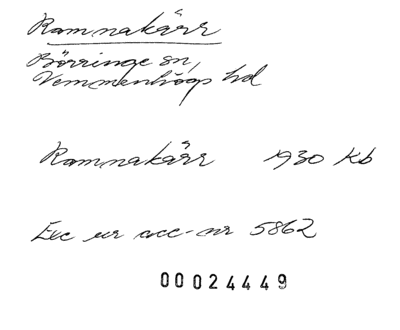 Ramnakärr
Börringe sn,
Vemmenhögs hd
Ramnakärr 1930 Kb
Exc ur acc-nr 5862
00024449